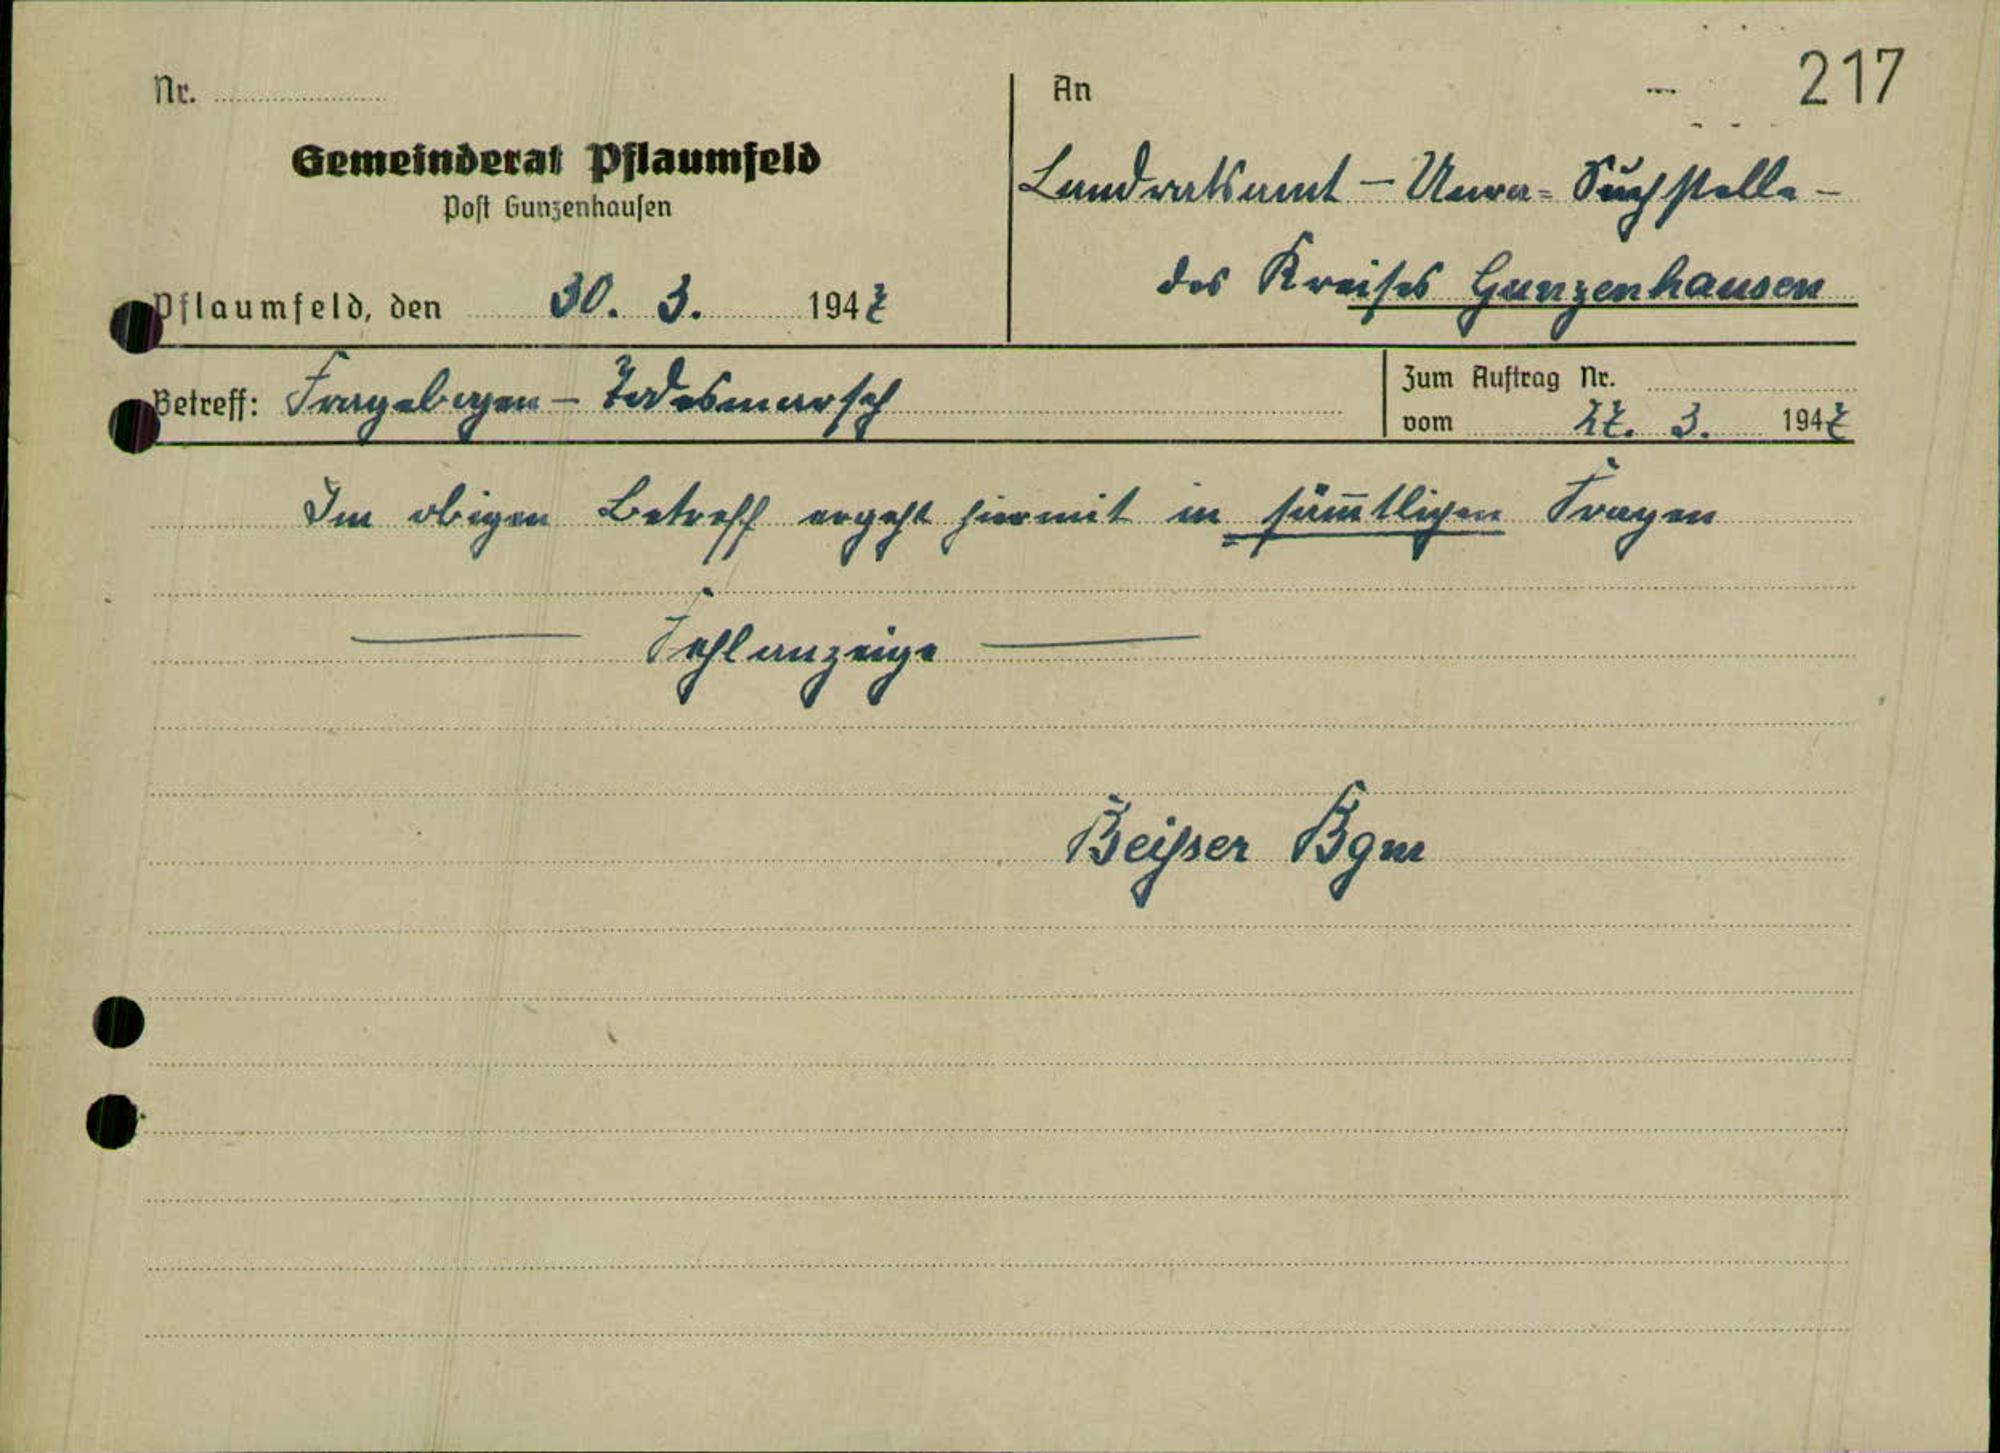 217
Nr.
Gemeinderat Pflaumfeld
Post Gunzenhausen
Pflaumfeld, den 30. 3. 1947
An
Landratsamt – Unra- Suchstelle –
des Kreises Gunzenhausen
Betreff: Fragebogen – Todesmarsch
Zum Auftrag Nr.
vom 27. 3. 1947
Im obigen Betreff ergeht hiermit in sämtlichen Fragen
— Fehlanzeige —
Beißer Bgm